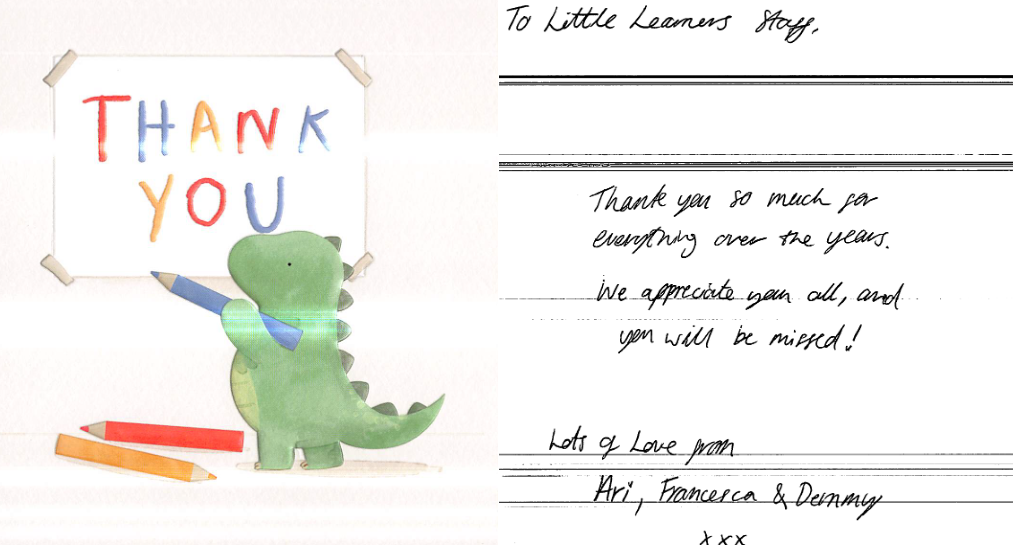 THANK
YOU
To Little Learners Staff,
Thank you so much for
everything over the years.
We appreciate you all, and
you will be missed!
Lots of Love from
Ari, Francesca & Demmy
xxx